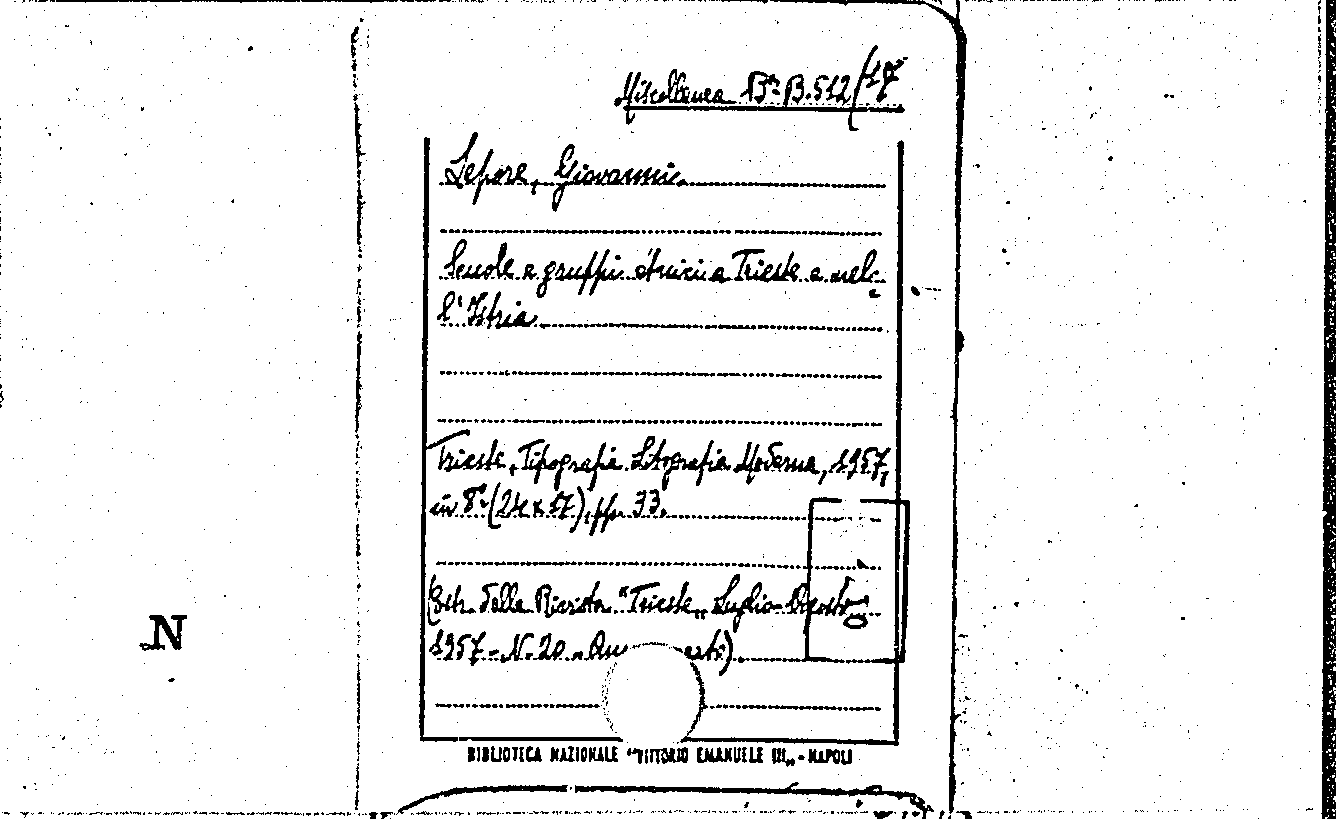 Miscellanea Bª B.512/17
Lepore, Giovanni.
Scuole e gruppi etnici a Trieste e nel-
l'Istria.
Trieste, Tipografia Litografia Moderna, 1957,
in 8º (24x17), pp. 33.
(Estr. dalla Rivista "Trieste" Luglio-Agosto
1957 - N. 20 -
N
BIBLIOTECA NAZIONALE "VITTORIO EMANUELE III" - NAPOLI